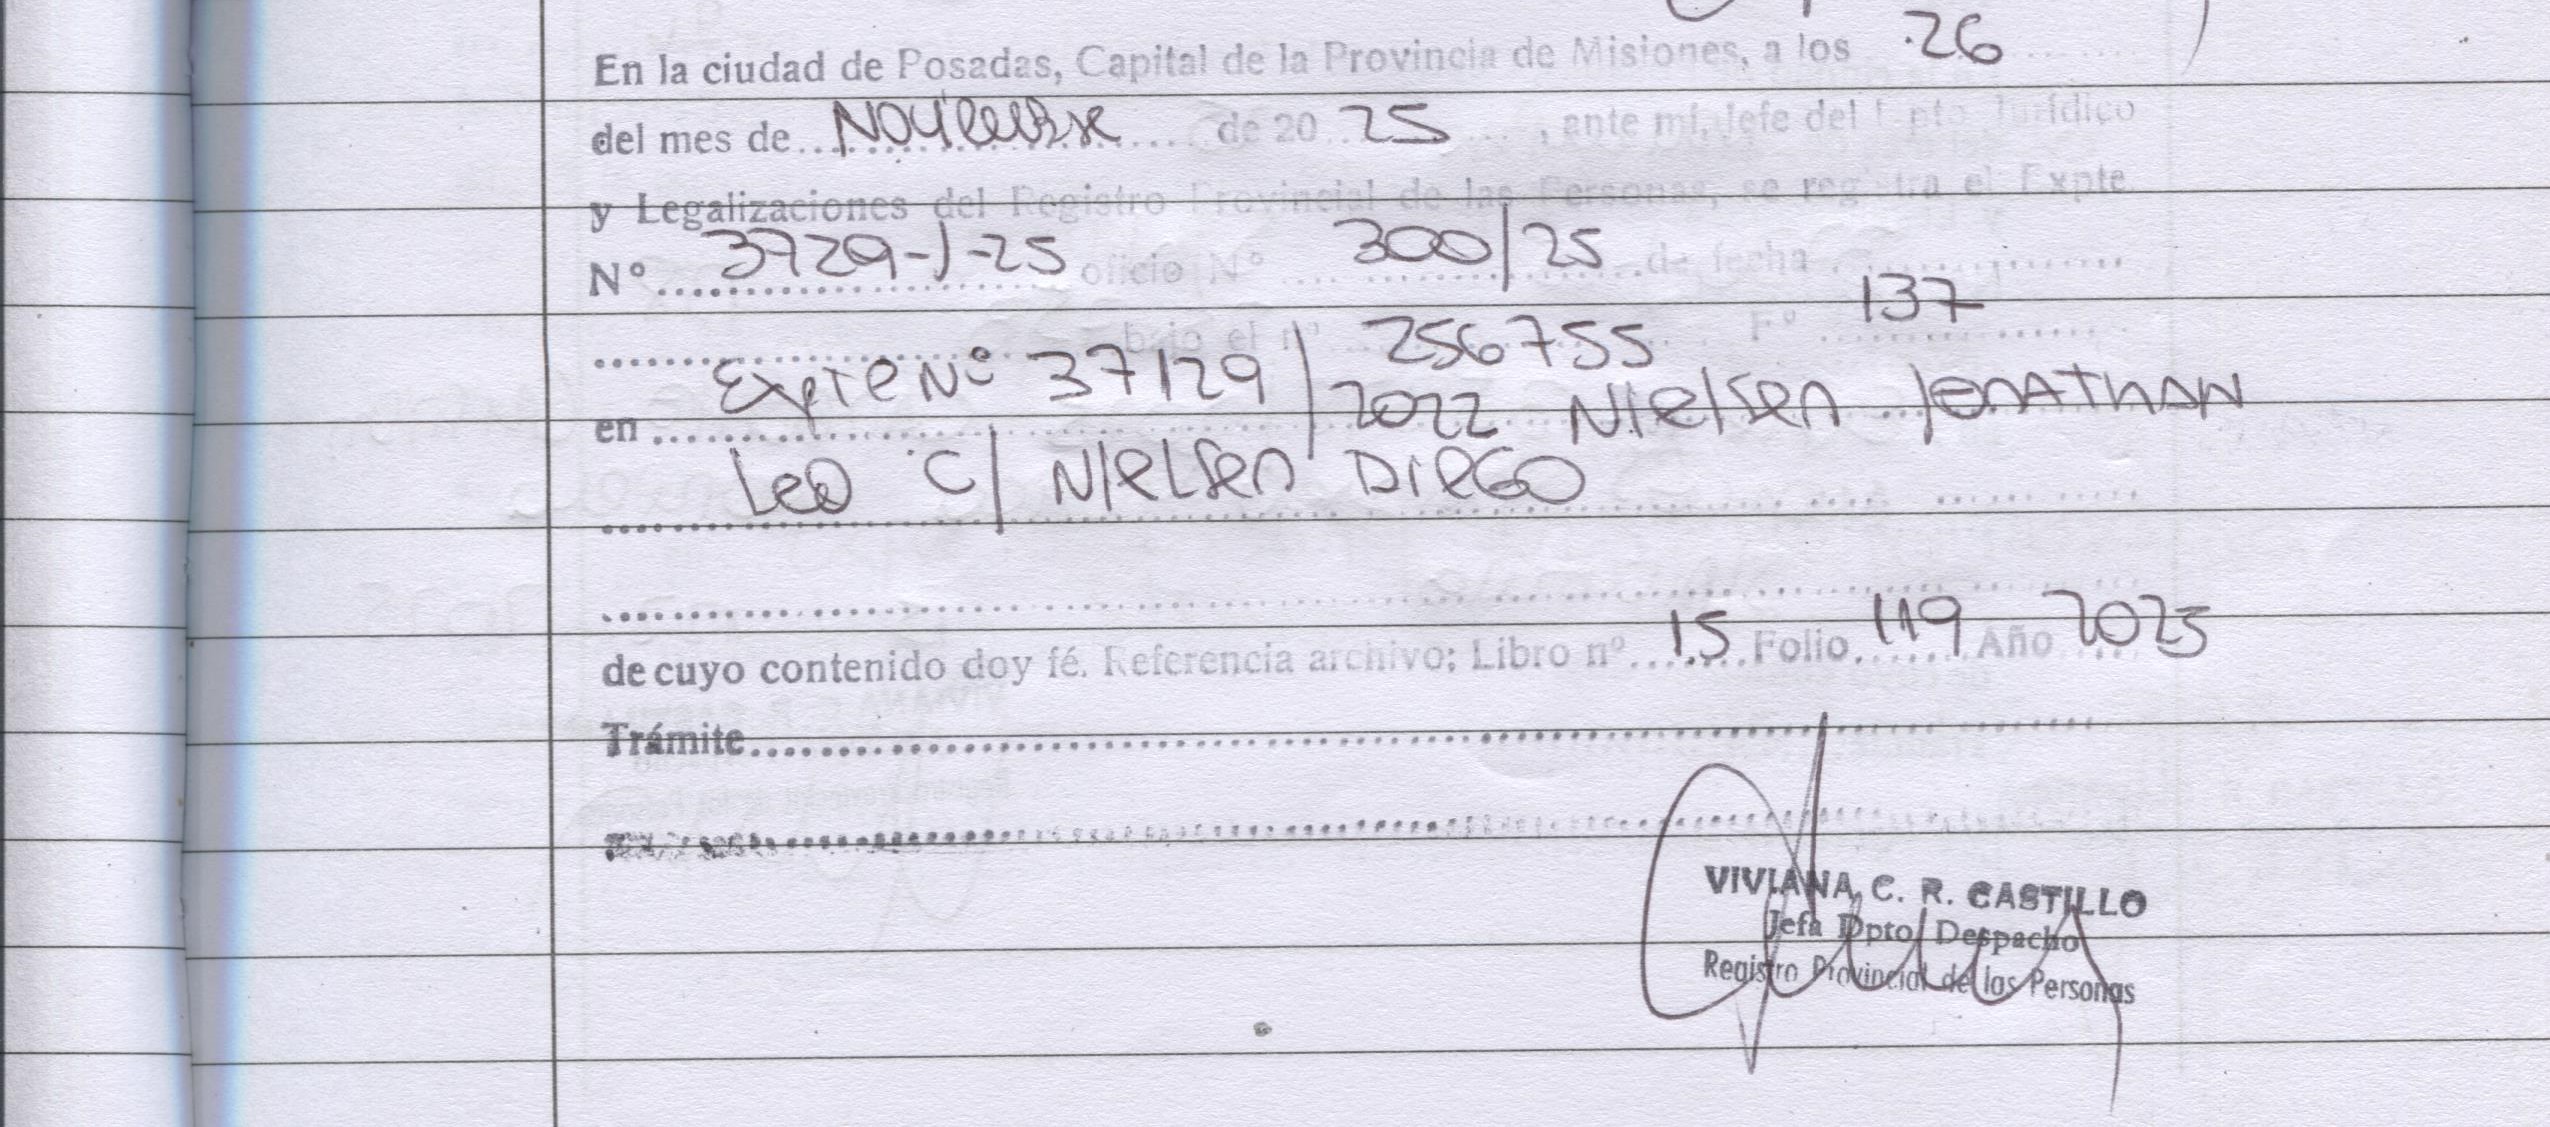 En la ciudad de Posadas, Capital de la Provincia de Misiones, a los 26
del mes de Noviembre de 20 25, ante mí, Jefe del Dpto. Jurídico
y Legalizaciones del Registro Provincial de las Personas, se registra el Expte.
N° 3729-J-25 oficio N° 300/25 de fecha
bajo el n° 256755 F° 137
en Expte N° 37129/2022 Nielsen Jonathan
Leo C/ Nielsen Diego
de cuyo contenido doy fé. Referencia archivo; Libro n° 15 Folio 119 Año 2025
Trámite
VIVIANA C. R. CASTILLO
Jefa Dpto Despacho
Registro Provincial de las Personas